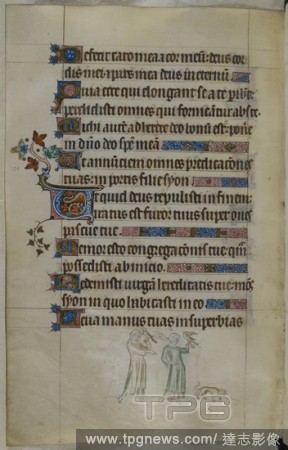 Defecit caro mea & cor meū: deus cor
dis mei & pars mea deus in eternū
Quia ecce qui elongant se a te
perdidisti omnes qui fornicātur abs te.
Michi autē adherere deo bonū est: pone
in dño deo spem meā
Ut annūtiem omnes predicacōnes
tuas: in portis filie syon
Ut quid deus repulisti in finem:
iratus est furor tuus super oues
pascue tue.
Memor esto congregacōnis tue: quā
possedisti ab inicio.
Redemisti uirgā hereditatis tue: mōs
syon in quo habitasti in eo.
Leua manus tuas in superbias
TPG
www.tpgnews.com/ 達志影像